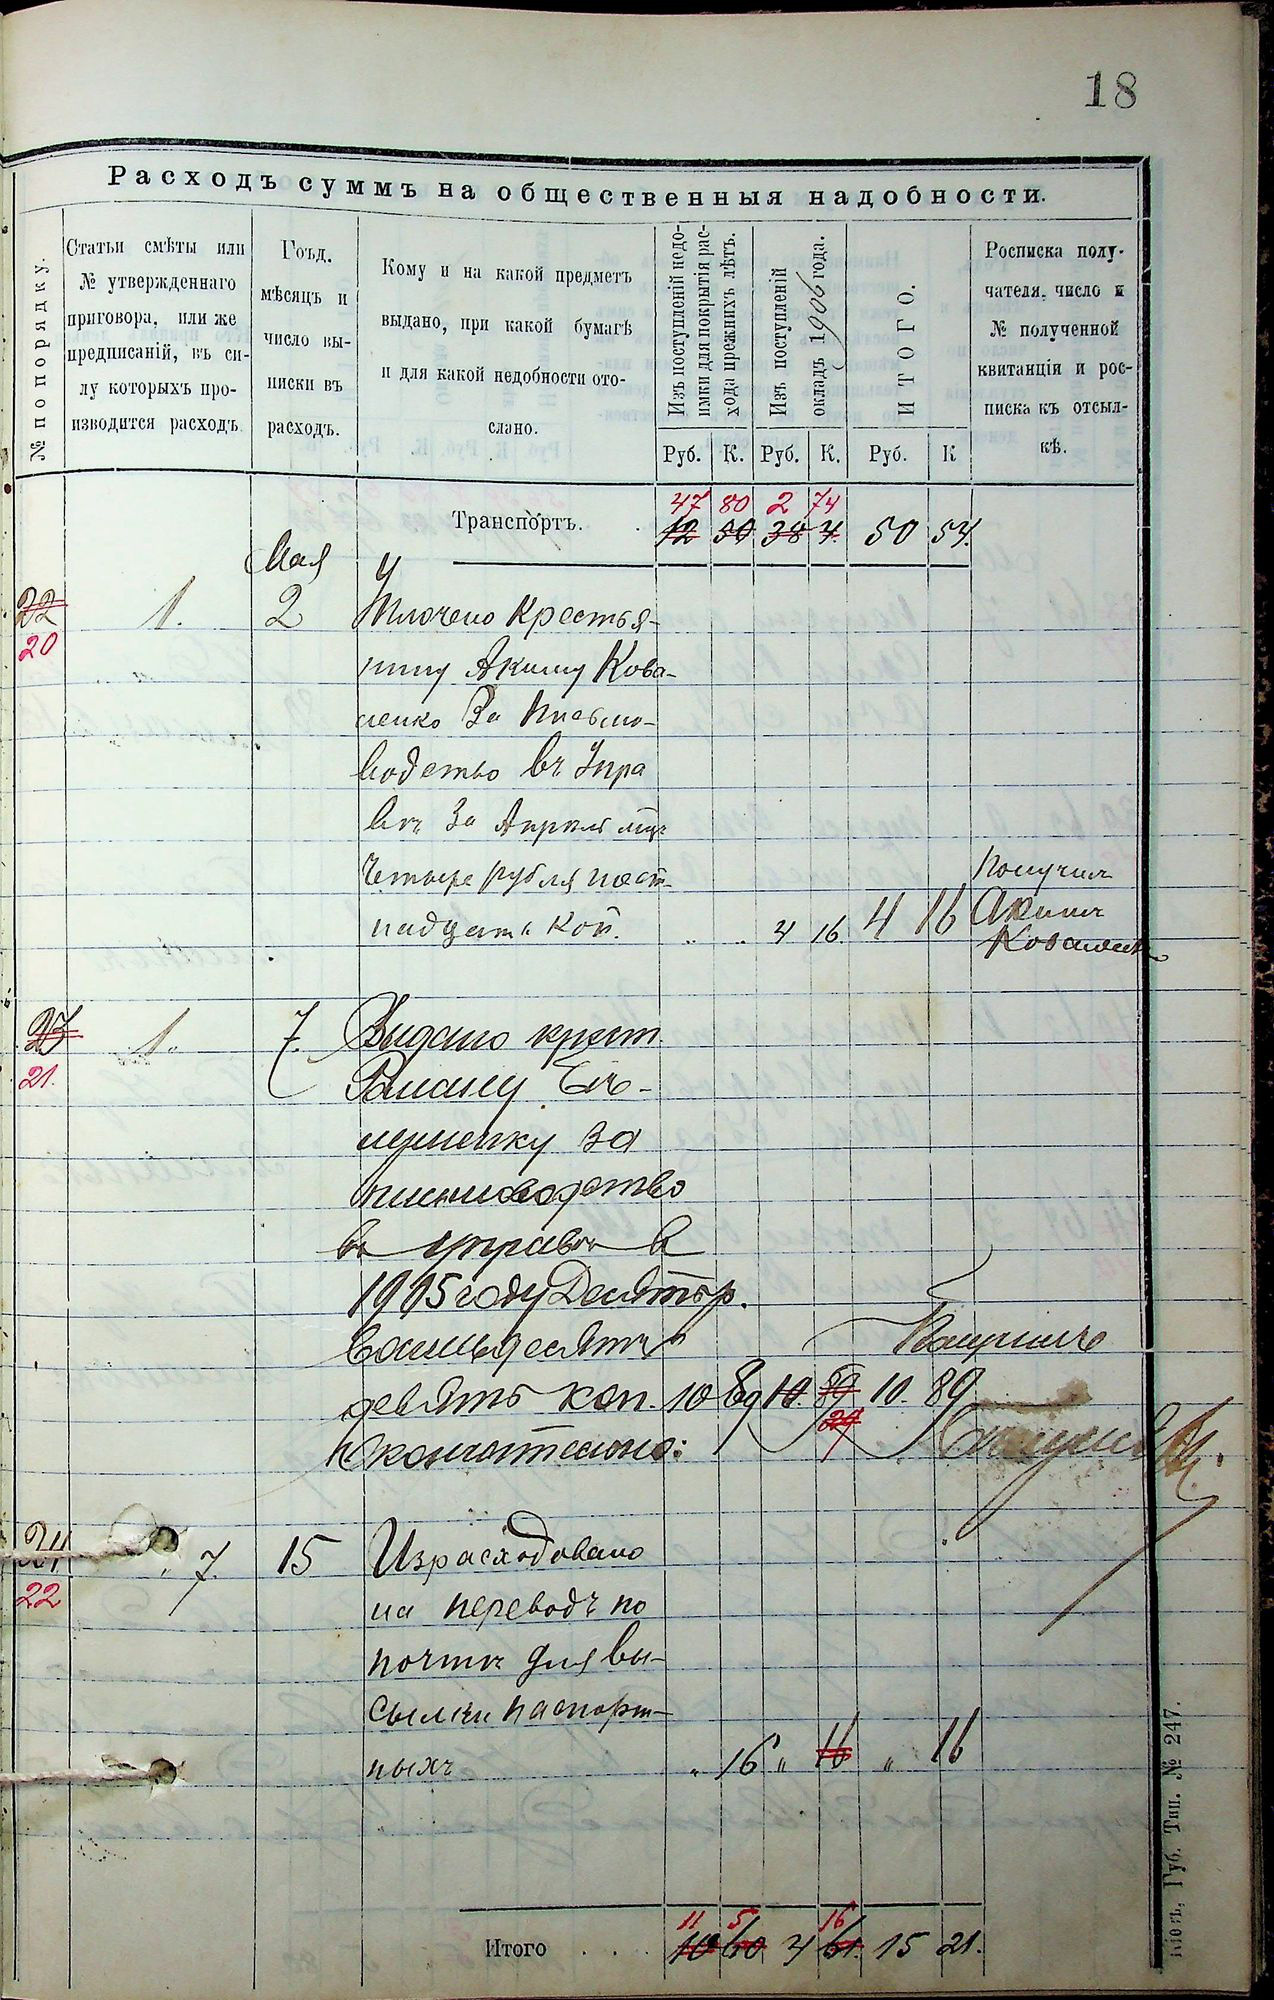 18
Расходъ суммъ на общественныя надобности.
№ по порядку.
Статьи смѣты или
№ утвержденнаго
приговора, или же
предписаній, въ си-
лу которыхъ про-
изводится расходъ.
Гоъд.
мѣсяцъ и
число вы-
писки въ
расходъ.
Кому и на какой предметъ
выдано, при какой бумагѣ
и для какой недобности ото-
слано.
Изъ поступленій недо-
имки для покрытія рас-
хода прежнихъ лѣтъ.
Изъ поступленій
окладъ 1906 года.
ИТОГО.
Росписка полу-
чателя, число и
№ полученной
квитанціи и рос-
писка къ отсыл-
кѣ.
Руб. К. Руб. К. Руб. К
47 80 2 74
Транспортъ. 12 50 38 4. 50 54.
Мая
22 1. 2 Уплочено Крестья-
20
нину Акиму Кова-
ленко За Письмо-
водство въ Упра
вѣ За Апрель мѣц
Четыре рубля шест-
Получилъ
надцать коп. 4 16. 4 16 Акимъ
Коваленко
23 1. 7. Видано крест.
21.
Роману
за
письмоводство
въ управѣ в
1905 году Десять р.
Восимьдесятъ
Получилъ
девять коп. 10 89 10. 89 10. 89
29
24 7. 15 Израсходовано
22 на переводъ по
почтѣ для вы-
сылки паспорт-
ныхъ „ 16 „ 16 „ 16
11 5 16
Итого 10 60 4 61. 15 21.
Кіевъ, Губ. Тип. № 247.